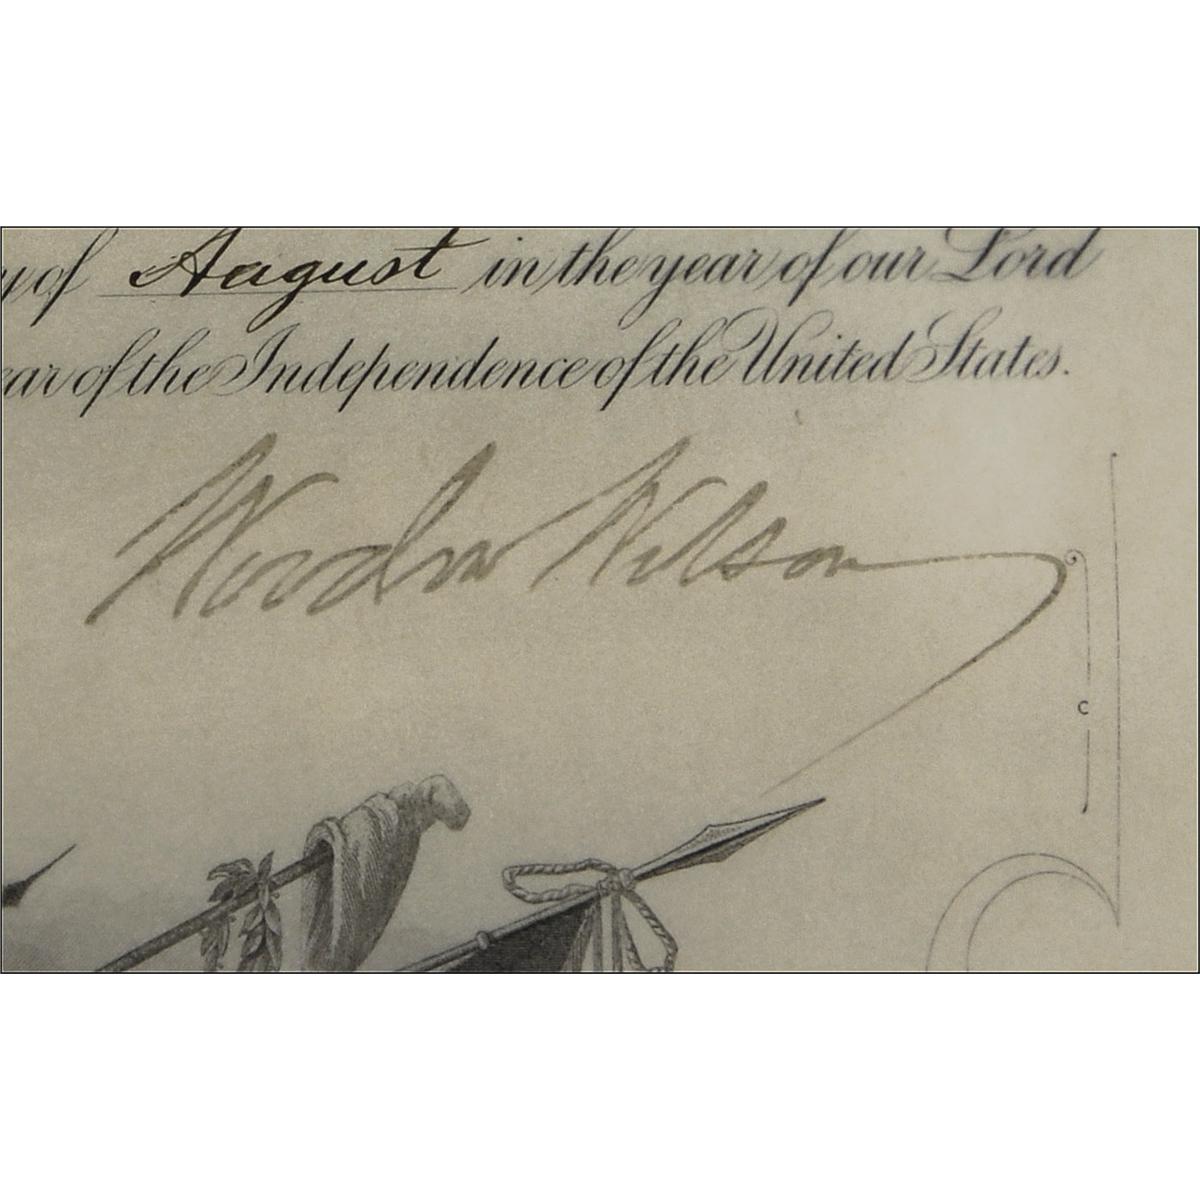 of August in the year of our Lord
of the Independence of the United States.
Woodrow Wilson
C